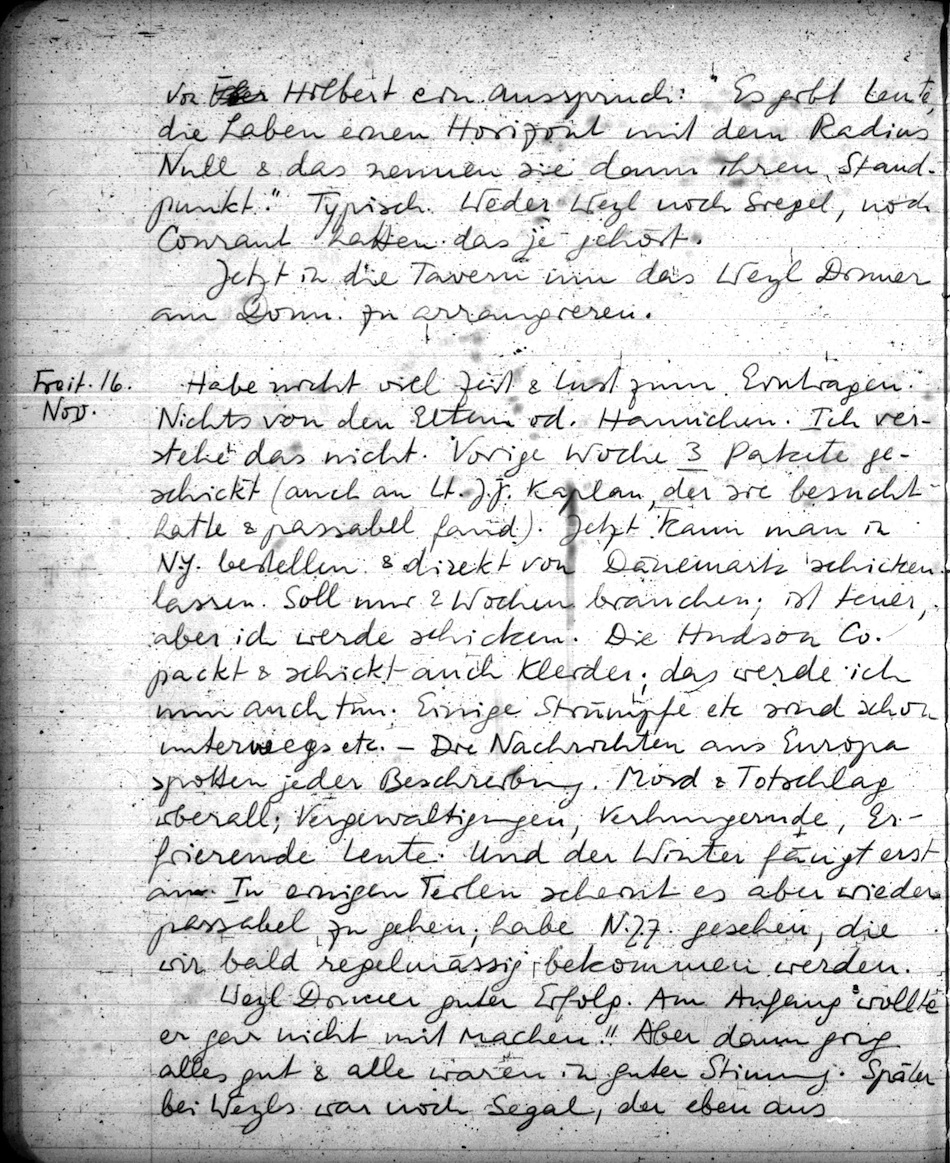 von Hilbert ein Ausspruch: "Es gibt Leute,
die haben einen Horizont mit dem Radius
Null & das nennen sie dann ihren Stand-
punkt." Typisch. Weder Weyl noch Siegel, noch
Courant hatten das je gehört.
Jetzt in die Tavern um das Weyl Dinner
am Donn. zu arrangieren.
Freit. 16.
Nov.
Habe nicht viel Zeit & Lust zum Eintragen.
Nichts von den Eltern od. Hannchen. Ich ver-
stehe das nicht. Vorige Woche 3 Pakete ge-
schickt (auch an Lt. J.J. Kaplan, der sie besucht
hatte & passabel fand). Jetzt kann man in
N.Y. bestellen & direkt von Dänemark schicken
lassen. Soll nur 2 Wochen brauchen; ist teuer,
aber ich werde schicken. Die Hudson Co.
packt & schickt auch Kleider; das werde ich
nun auch tun. Einige Strümpfe etc sind schon
unterwegs etc. – Die Nachrichten aus Europa
spotten jeder Beschreibung. Mord & Totschlag
überall; Vergewaltigungen, Verhungernde, Er-
frierende Leute. Und der Winter fängt erst
an. In einigen Teilen scheint es aber wieder
passabel zu gehen; habe N.Z.Z. gesehen, die
wir bald regelmässig bekommen werden.
Weyl Dinner guter Erfolg. Am Anfang wollte
er gar nicht mit machen!! Aber dann ging
alles gut & alle waren in guter Stimmung. Später
bei Weyls war noch Segal, der eben aus